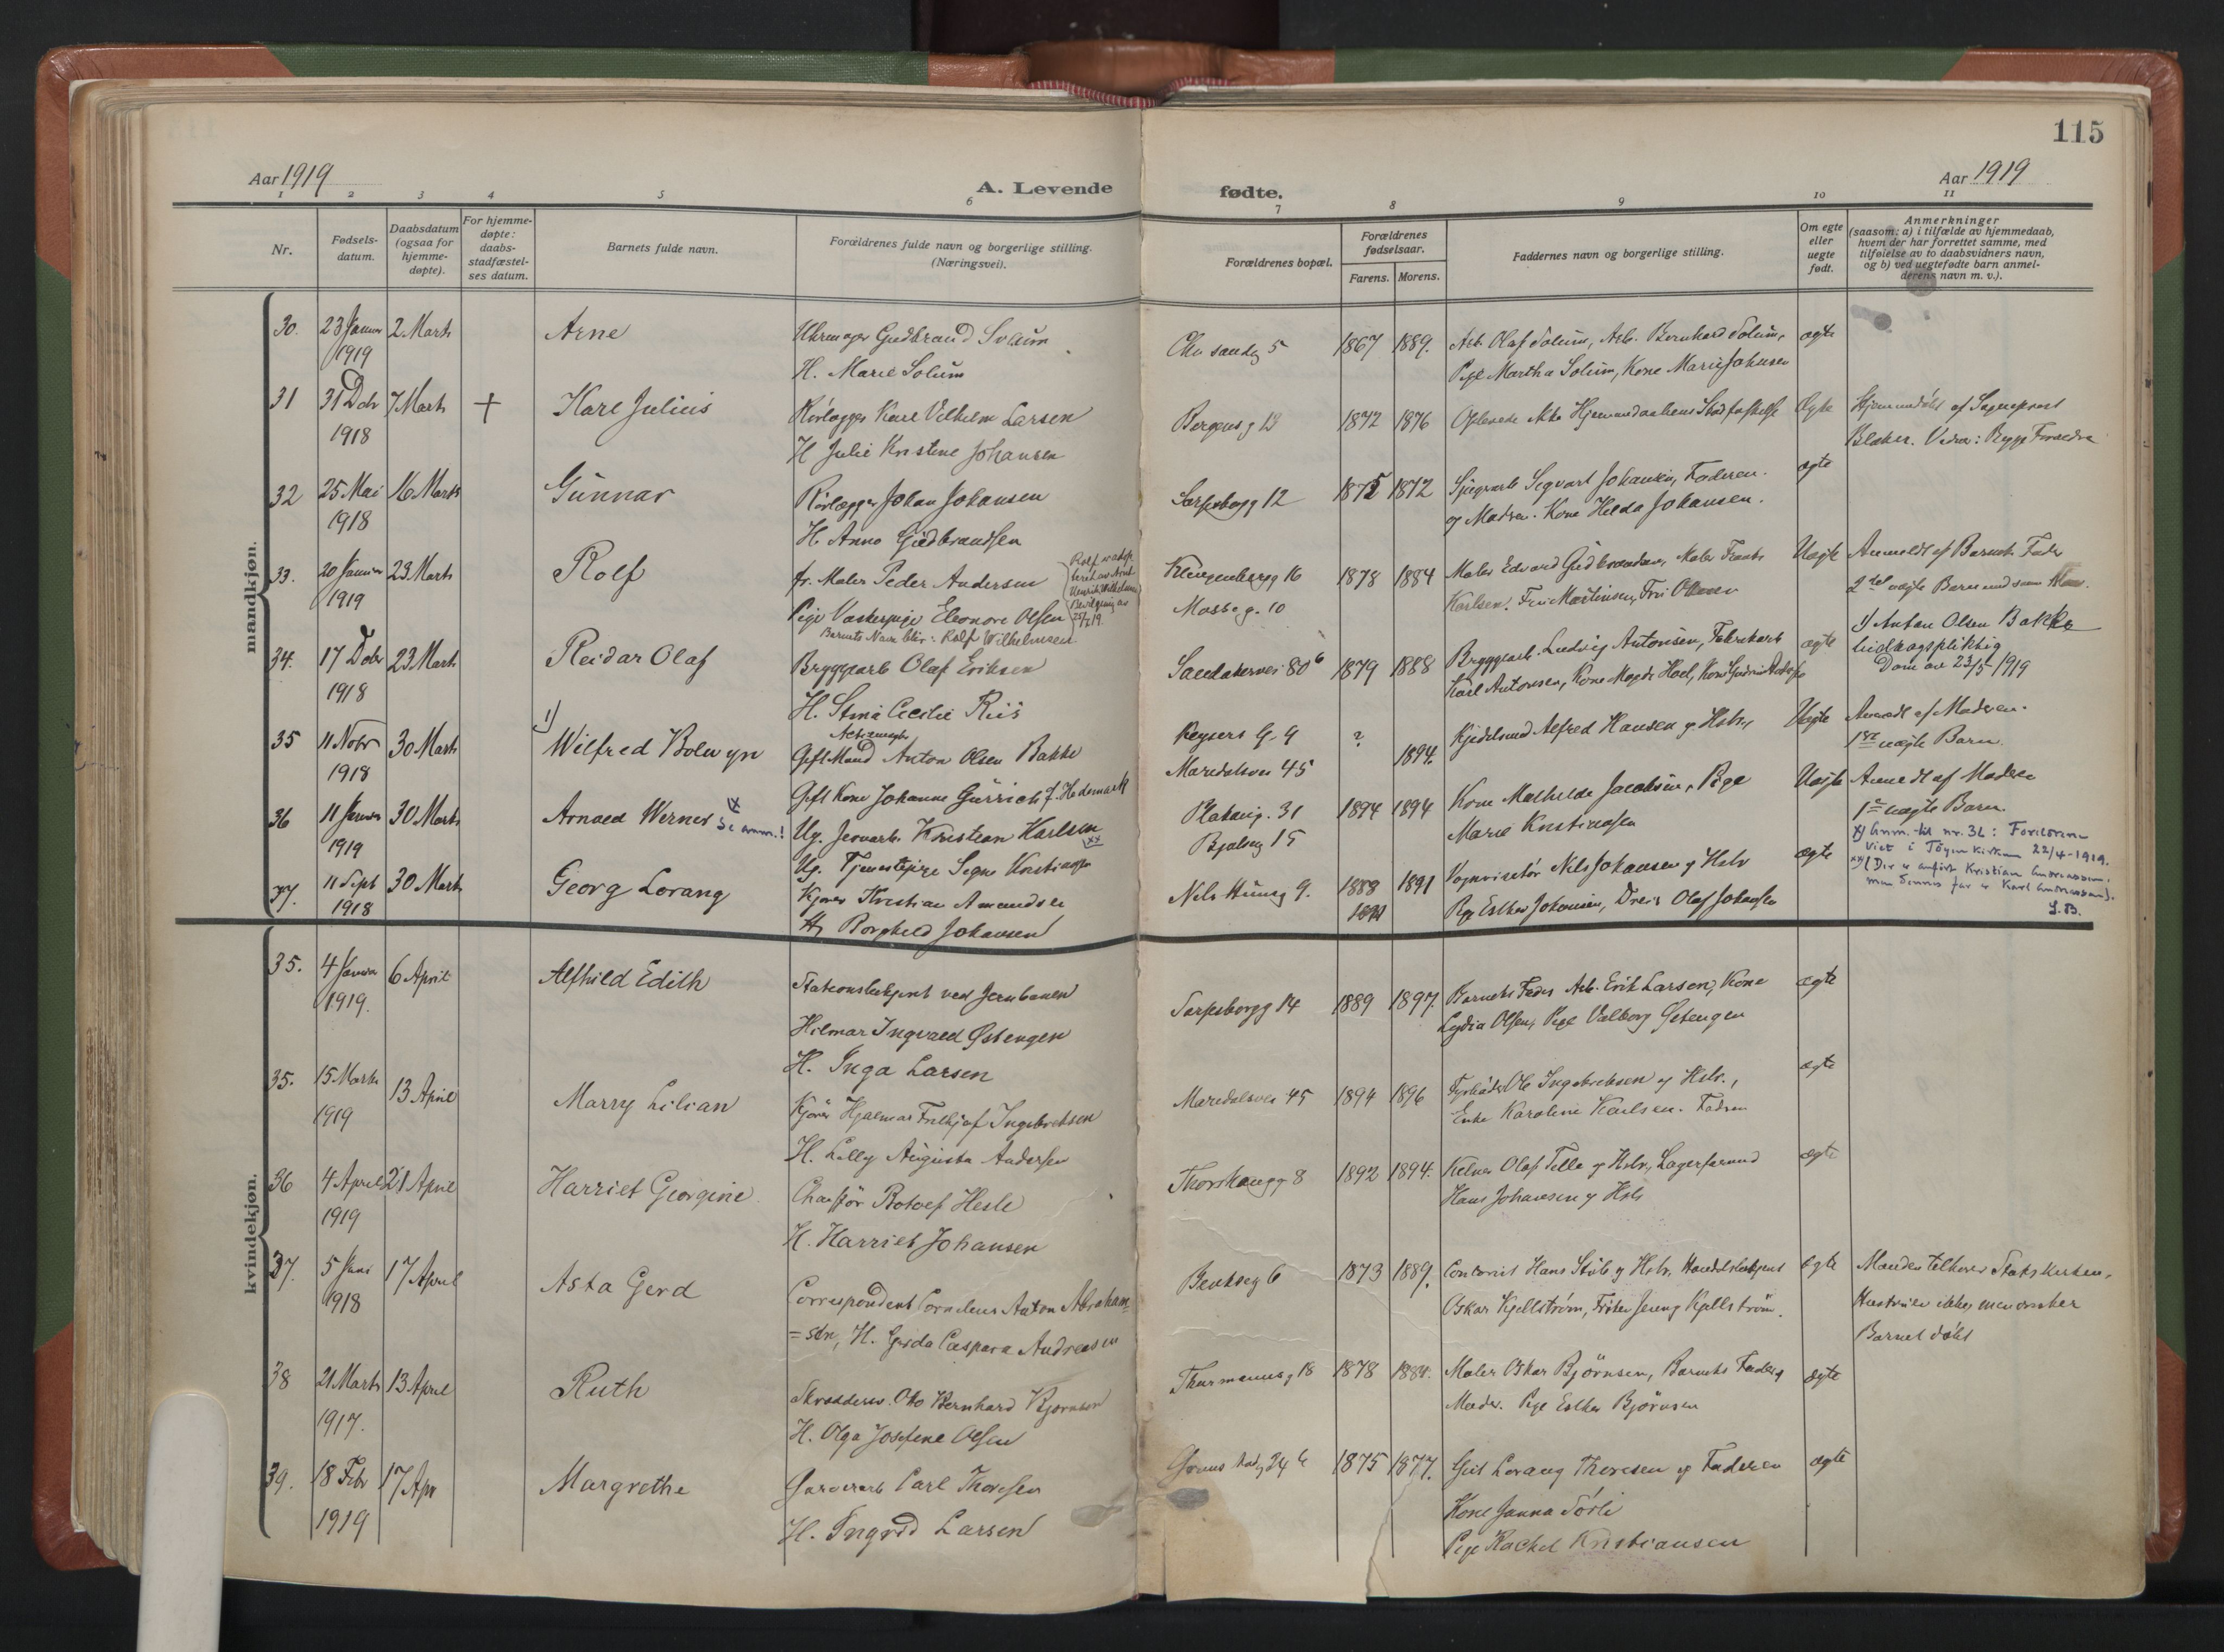 115
Aar 1919
A. Levende
fødte.
Aar 1919
1 2 3 4 5 6 7 8 9 10 11
Nr.
Fødsels-
datum.
Daabsdatum
(ogsaa for
hjemme-
døpte).
For hjemme-
døpte:
daabs-
stadfæstel-
ses datum.
Barnets fulde navn.
Forældrenes fulde navn og borgerlige stilling.
(Næringsvei).
Forældrenes bopæl.
Forældrenes
fødselsaar.
Farens. Morens.
Faddernes navn og borgerlige stilling.
Om egte
eller
uegte
født.
Anmerkninger
(saasom: a) i tilfælde av hjemmedaab,
hvem der har forrettet samme, med
tilføielse av to daabsvidners navn,
og b) ved uegtefødte barn anmel-
derens navn m. v.).
mandkjøn.
30. 23 Januar 2 Marts Arne Uhrmager Gudbrand Solum 5 1867 1889. Arb. Olaf Solum, Arb. Bernhard Solum, ægte
1919 H. Marie Solum Pige Martha Solum, Kone Marie Johansen
31 31 Dcbr 7 Marts + Karl Julius Rørlægger Karl Vilhelm Larsen Bergensg 1872 1876 Oplevede ikke Hjemmedaabens Stadfæstelse Ægte Hjemmedøbt af Sogneprest
1918 H Julie Kristine Johansen Blaker.
32 25 Mai 16 Marts Gunnar Rørlægger Johan Johansen Sarpsborgg 12 1875 1872 Sigvart Johansen, Faderen ægte
1918 H. Anna Gudbrandsen og Moder. Kone Helda Johansen.
33. 20 Januar 23 Marts Rolf fr. Maler Peder Andersen Klingenbergg 16 1878 1884 Maler Edvard Gudbrandsen, Maler Frants Uægte Anmeldt af Barnets Fader
1919 Pige Vaskepige Eleonore Olsen Mosseg. 10 Karlsen, Fru Martinsen, Fru Olsen 2det uægte Barn med samme
Barnets Navn blir: Rolf Wilhelmsen
34. 17 Dcbr 23 Marts Reidar Olaf Bryggearb Olaf Eriksen Sandakervei 80b 1879 1888 Bryggearb. Ludvig Antonsen, Fabrikarb ægte
1918 H. Stina Cecilie Riis Karl Antonsen, Kone Magda Hoel,
1) Anton Olsen Bakke
bidragspliktig
Dom av 23/5 1919
35 11 Nobr 30 Marts 1) Wilfred Bolwyn Gift Mand Anton Olsen Bakke Keysers G. 9 ? 1894. Alfred Hansen g Hstr, Uægte Anmeldt af Moderen.
1918 Gift Kone Johanne f. Hedemark Maridalsvei 45 1ste uægte Barn.
36 11 Januar 30 Marts Arnold Werner x) Se anm.! Ug. Jernarb. Kristian Karlsen xx) Platoug. 31 1894 1894 Kone Mathilde Jacobsen, Pige Uægte Anmeldt af Moder
1919 Ug. Tjenestepige Signe Kristiansen 15 Marie Kristiansen 1ste uægte Barn.
x) Anm. til nr. 36: Forældrene
viet i Tøyen Kirken 22/4-1919.
xx) (Der er anført Kristian Andreassen.
men dennes far er Karl Andreassen).
S.B.
37. 11 Septb 30 Marts Georg Lorang Kjører Kristian Amundsen Nils Huusg 9. 1888 1891 Vognvisitør Nils Johansen g Hstr ægte
1918 H. Borghild Johansen Pige Esther Johansen, Olaf Johansen
kvindekjøn.
35. 4 Januar 6 April Alfhild Edith Stationsbetjent ved Jernbanen Sarpsborgg 14 1889 1897. Barnets Fader Arb. Erik Larsen, Kone ægte
1919. Hilmar Ingvald Østengen Lydia Olsen, Pige Valborg
H. Inga Larsen
35. 15 Marts 13 April Marry Lilian Kjører Hjalmar Fritjof Ingebretsen Maridalsvei 45 1894 1896 Fyrbøder Ole Ingebretsen g Hstr., ægte
1919 H. Lilly Augusta Andersen Enke Karoline Karlsen. Fadren
36 4 April 21 April Harriet Georgine Chauffør Rolf Hesle Thorshaugg 8 1892 1894. Kelner Olaf Telle g Hstr, Lagerformand ægte
1919 H. Harriet Johansen Hans Johansen g Hstr
37. 5 Juni 17 April Asta Gerd Correspondent Cornelius Anton Abraham= Bentseg 6 1873 1889. Hans g Hstr, Handelsbetjent ægte Manden tilhører Statskirken,
1918 =sen, H. Gerda Caspara Andreasen Oskar Kjellstrøm, Frøken Jenny Kjellstrøm. Hustruen ikke, men ønsker
Barnet døbt
38 21 Marts 13 April Ruth Skrædderm. Otto Bernhard Bjørnsen Thurmannsg 18 1878 1884. Maler Oskar Bjørnsen, Barnets Fader g ægte
1917. H. Olga Josefine Olsen Moder. Pige Esther Bjørnsen
39. 18 Febr 17 Apr Margrethe Garverarb Carl Thoresen 1875 1877. Lorang Thoresen og Faderen ægte
1919 H. Ingrid Larsen Kone Janna Sørli
Pige Rachel Kristiansen